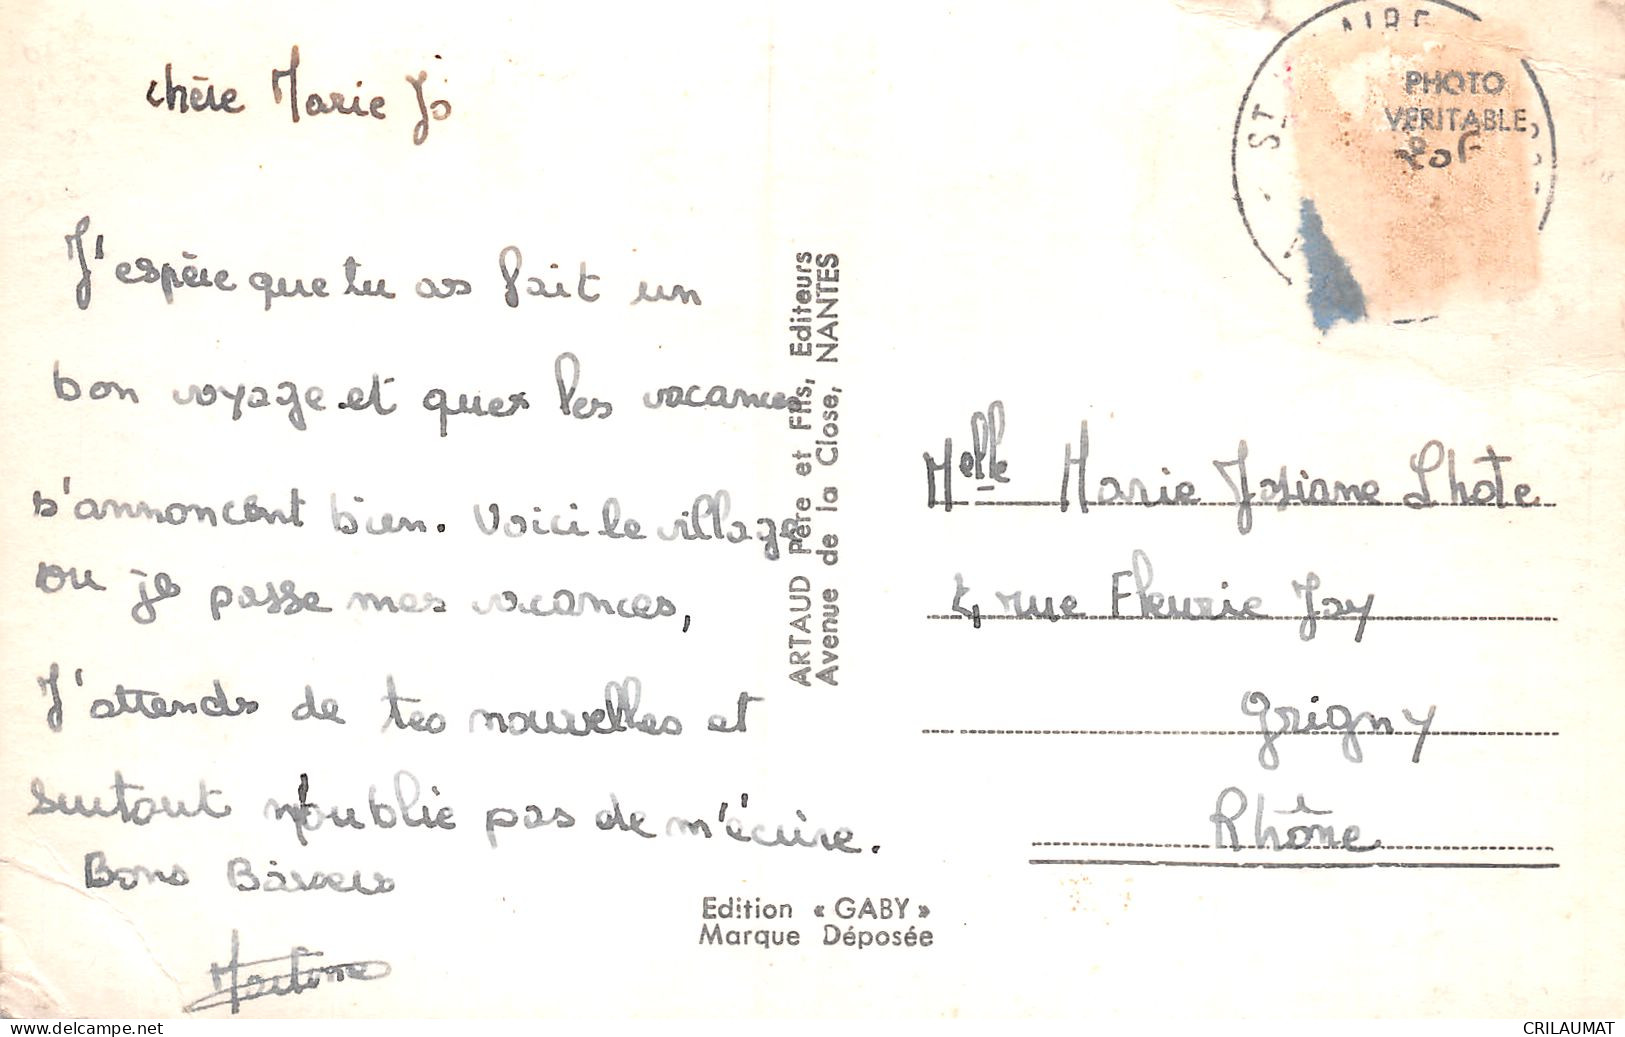 chère Marie Jo
J'espère que tu as fait un
bon voyage et que les vacances
s'annoncent bien. Voici le village
ou je passe mes vacances,
J'attends de tes nouvelles et
surtout n'oublie pas de m'écrire.
Bons Baisers
Martine
ARTAUD Père et Fils, Editeurs
Avenue de la Close, NANTES
Edition « GABY »
Marque Déposée
ST AIRE
PHOTO
VERITABLE,
Melle Marie Josiane Lhote
4 rue Fleurie Jay
Grigny
Rhône
CRILAUMAT
www.delcampe.net